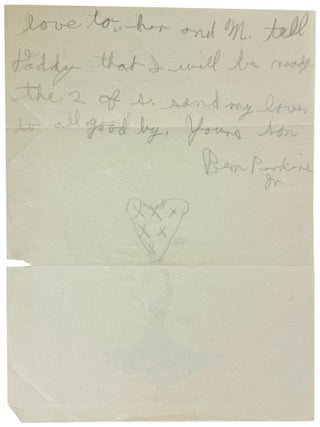 love to her and M. tell
daddy that I will be ready
the 2 of s. send my love
to all good by, Yours son
Ben Perkins
Jr.
X X X
X X
X